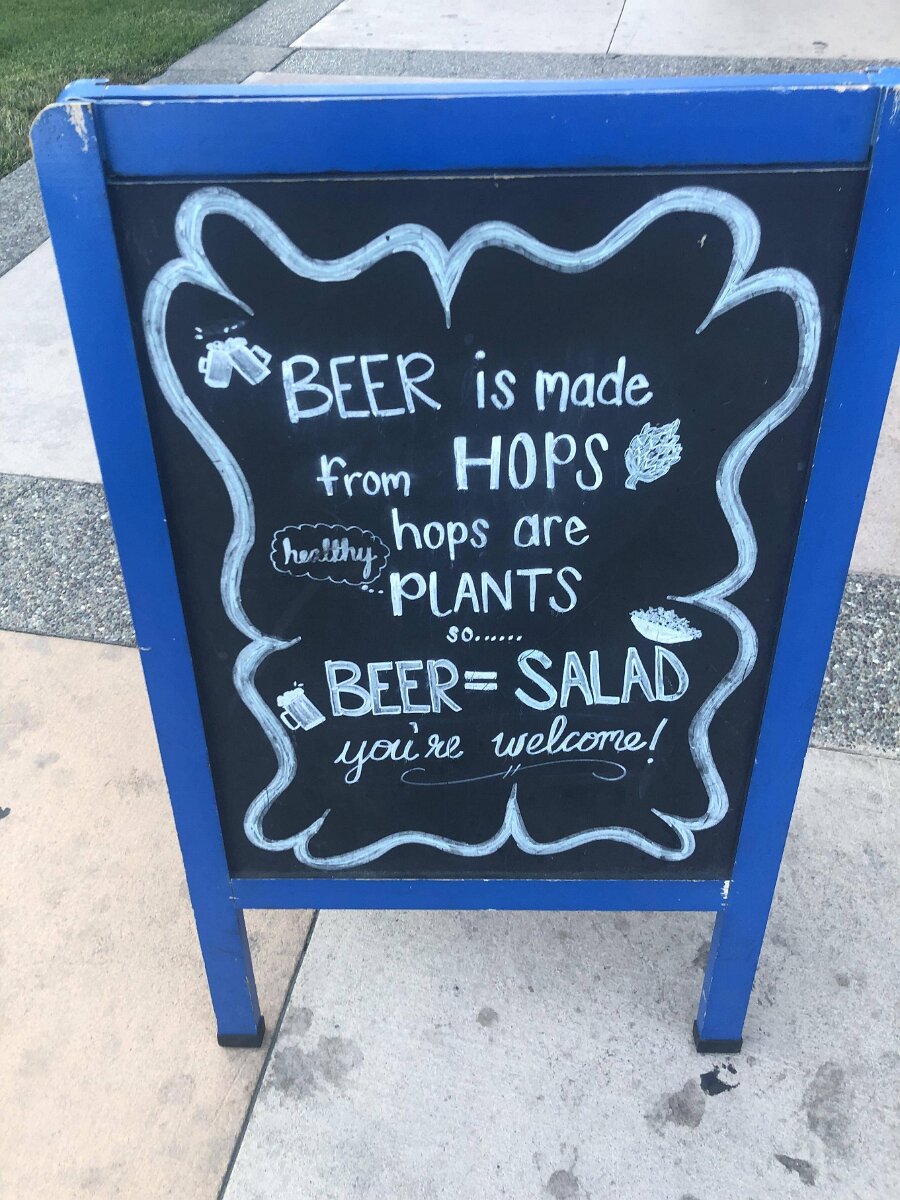 BEER is made
from HOPS
hops are
healthy
PLANTS
so......
BEER = SALAD
you're welcome!